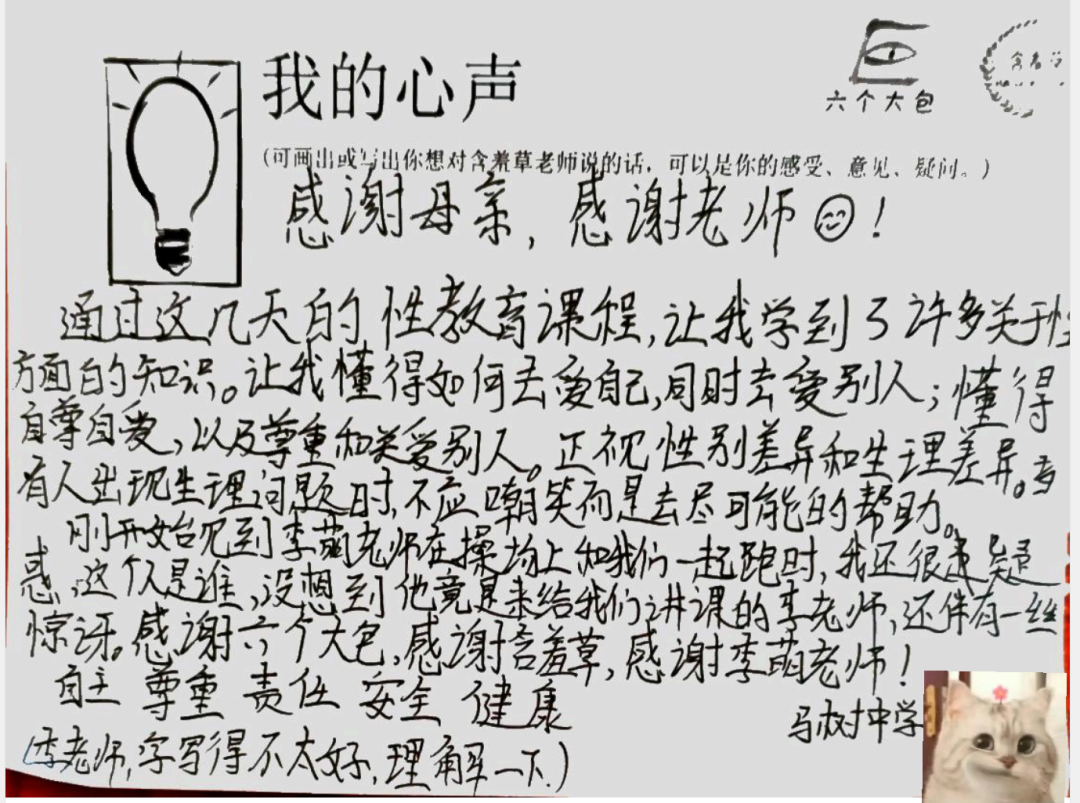 我的心声
六个大包
(可画出或写出你想对含羞草老师说的话，可以是你的感受、意见、疑问。)
感谢母亲，感谢老师！
通过这几天的性教育课程，让我学到了许多关于性
方面的知识。让我懂得如何去爱自己，同时去爱别人；懂得
自尊自爱，以及尊重和关爱别人。正视性别差异和生理差异。当
有人出现生理问题时，不应嘲笑而是去尽可能的帮助。
刚开始见到李萌老师在操场上和我们一起跑时，我还很是疑
惑，这个人是谁，没想到他竟是来给我们讲课的李老师，还伴有一丝
惊讶。感谢六个大包，感谢含羞草，感谢李萌老师！
自主 尊重 责任 安全 健康
马树中学
(李老师，字写得不太好，理解一下)